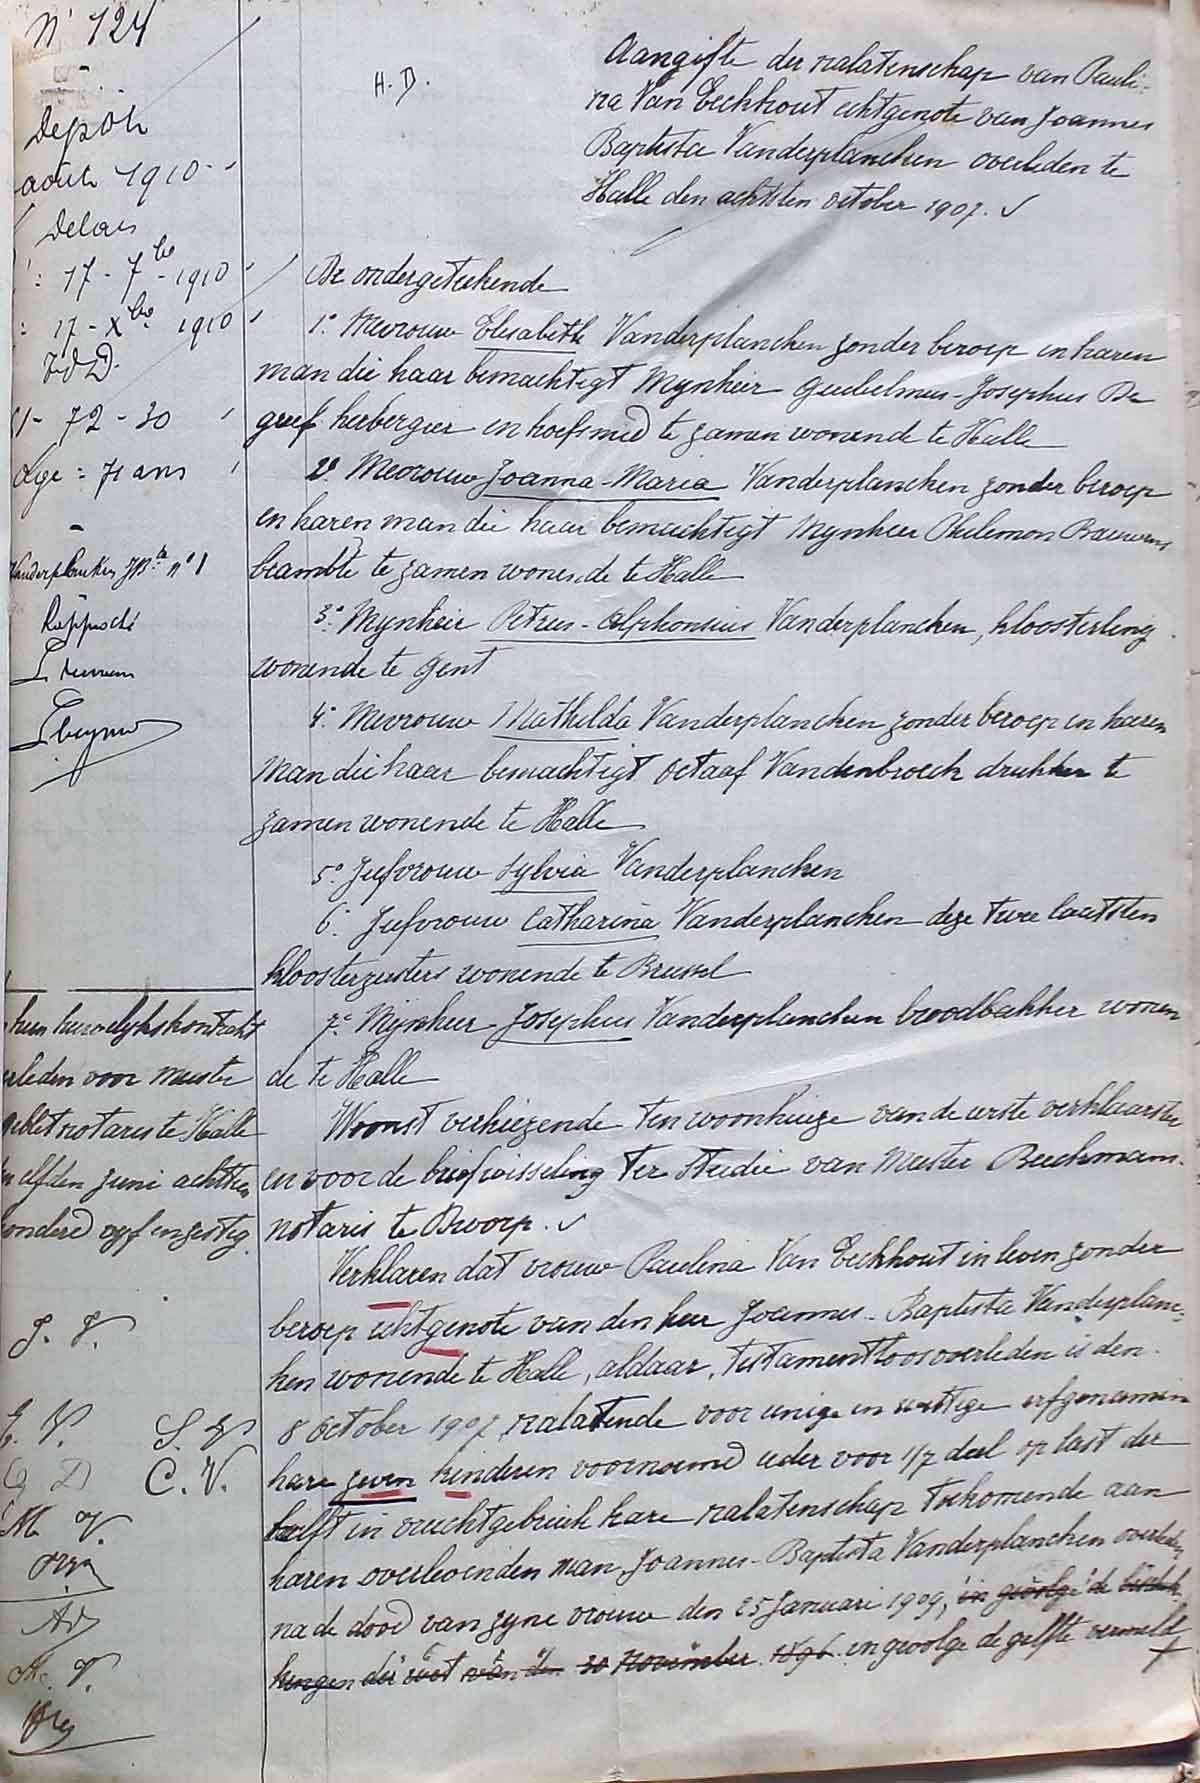 N° 124
H. D.
Aangifte der nalatenschap van Pauli-
na Van Eeckhout echtgenote van Joannes
Baptista Vanderplancken overleden te
Halle den achtsten october 1907.
Dépôt
août 1910
Délais
17-7bre-1910
17-Xbre 1910
72-30
age = 71 ans
Rapproché
De ondergeteekende
1° Mevrouw Elisabeth Vanderplancken zonder beroep en haren
man die haar bemachtigt Mynheer Guilielmus-Josephus De
greef herbergier en hoefsmid te zamen wonende te Halle
2° Mevrouw Joanna-Maria Vanderplancken zonder beroep
en haren man die haar bemachtigt Mynheer Philemon Brauwers
beambte te zamen wonende te Halle
3° Mynheer Petrus-Alphonsius Vanderplancken, kloosterling
wonende te Gent
4° Mevrouw Mathilda Vanderplancken zonder beroep en haren
man die haar bemachtigt Octaaf Vandenbroeck drukker te
zamen wonende te Halle
5° Jufvrouw Sylvia Vanderplancken
6° Jufvrouw Catharina Vanderplancken deze twee laatsten
kloosterzusters wonende te Brussel
7° Mynheer Josephus Vanderplancken broodbakker wonen
de te Halle
Woonst verkiezende ten woonhuize van de eerste verklaarster
en voor de briefwisseling ter studie van Meester Beeckmans
notaris te Dworp.
Verklaren dat vrouw Paulina Van Eeckhout in leven zonder
beroep echtgenote van den heer Joannes-Baptista Vanderplanc-
ken wonende te Halle, aldaar, testamentloos overleden is den
8 October 1907, nalatende voor eenige en wettige erfgenamen
hare zeven kinderen voornoemd ieder voor 1/7 deel op last der
helft in vruchtgebruik hare nalatenschap toekomende aan
haren overlevenden man, Joannes-Baptista Vanderplancken overleden
na de dood van zyne vrouw den 25 Januari 1909, in gevolge de beschik
kingen der wet van den 20 november 1896 in gevolge de gifte vermeld
hun huwelykskontrakt
verleden voor Meester
notaris te Halle
elfden juni achttien
honderd vyf en zestig
J. V.
E. V. S. V.
G D C. V.
M. V.